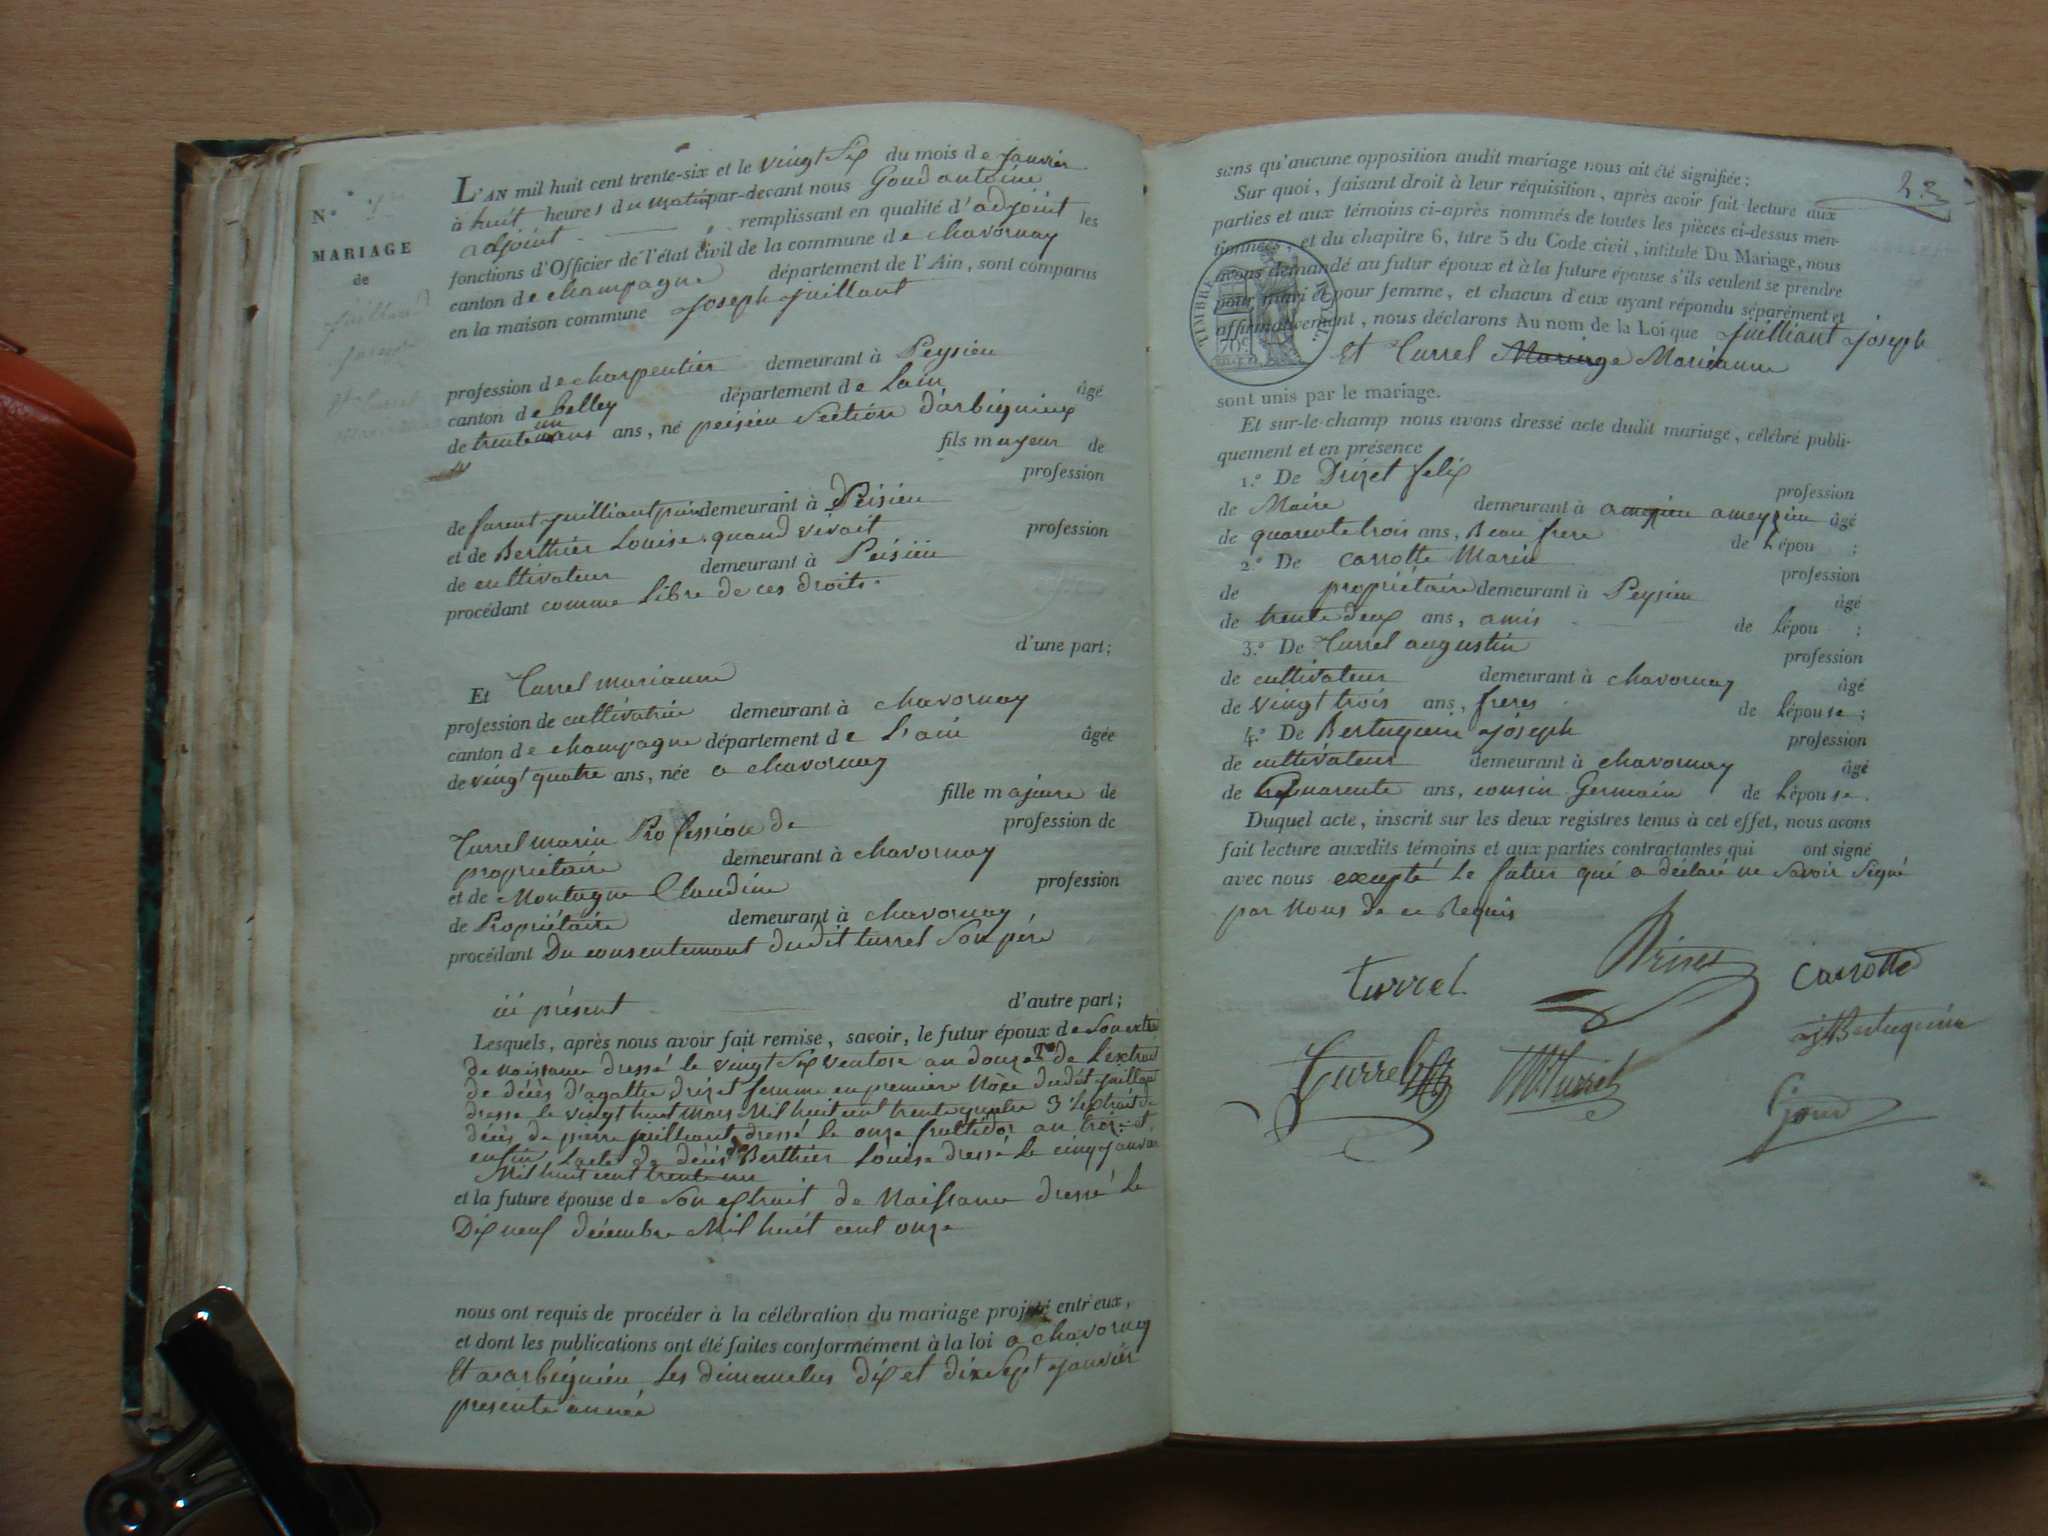 N.°
MARIAGE
de
L'AN mil huit cent trente-six et le vingt Six du mois de janvier
à huit heures du matin par-devant nous Goud antoine
adjoint remplissant en qualité d'adjoint les
fonctions d'Officier de l'état civil de la commune de chavornay
canton de champagne département de l'Ain, sont comparus
en la maison commune Joseph juillant
profession de charpentier demeurant à Peysieu
canton de belley département de Lain âgé
de trente un ans, né peisieu Section d'arbignieux
fils mayeur de
profession
de farent juilliant pierre demeurant à Peisieu
et de Berthier Louise quand vivait profession
de cultivateur demeurant à Peisieu
procédant comme Libre de ces droits.
d'une part;
Et Turrel marianne
profession de cultivatrice demeurant à chavornay
canton de champagne département de L'ain âgée
de vingt quatre ans, née a chavornay
fille majeure de
Turrel marin Profession de profession de
propriétaire demeurant à chavornay
et de Montagne Claudine profession
de Propriétaire demeurant à chavornay
procédant Du consentement dudit turrel Son père
ici présent d'autre part;
Lesquels, après nous avoir fait remise, savoir, le futur époux de Son extrai
de naissance dressé le vingt Six ventose an douze 2° de Lextrait
de décès d'agathe drizet femme en premiere Noce dudit juillant
dresse le vingt huit mars Mil huit cent trente quatre 3° Lextrait de
décès de pierre juilliant dressé le onze fructidor an treize et
enfin Lacte de décès de Berthier Louise dressé Le cinq janvier
Mil huit cent trente un
et la future épouse de Son extrait de Naissance dressé Le
Dix neuf décembre Mil huit cent onze
nous ont requis de procéder à la célébration du mariage projeté entr'eux,
et dont les publications ont été faites conformément à la loi a chavornay
Et a arbignieu Les dimanches dix et dix Sept janvier
presente année
23
sans qu'aucune opposition audit mariage nous ait été signifiée:
Sur quoi, faisant droit à leur réquisition, après avoir fait lecture aux
parties et aux témoins ci-après nommés de toutes les pièces ci-dessus men-
tionnées, et du chapitre 6, titre 5 du Code civil, intitulé Du Mariage, nous
avons demandé au futur époux et à la future épouse s'ils veulent se prendre
pour mari et pour femme, et chacun d'eux ayant répondu séparément et
affirmativement, nous déclarons Au nom de la Loi que Juilliant Joseph
TIMBRE ROYAL
Et Turrel Mariange Marianne
sont unis par le mariage.
Et sur-le-champ nous avons dressé acte dudit mariage, célébré publi-
quement et en présence
1.° De Drizet felix profession
de Maire demeurant à ameyzieu ameyzieu âgé
de quarente trois ans, Beau frere de Lépou ;
2.° De carrotte Marin profession
de propriétaire demeurant à Peysieu âgé
de trente deux ans, amis de Lépou ;
3.° De Turrel augustin profession
de cultivateur demeurant à chavornay âgé
de vingt trois ans, freres de Lépouse;
4.° De Bertuguin Joseph profession
de cultivateur demeurant à chavornay âgé
de quarente ans, cousin Germain de Lépouse.
Duquel acte, inscrit sur les deux registres tenus à cet effet, nous avons
fait lecture auxdits témoins et aux parties contractantes qui ont signé
avec nous excepté Le futur qui a déclaré ne Savoir Signé
par Nous de ce Requis
turrel Drizet Carrotte
J Bertuguin
Turrel M Turrel
Goud